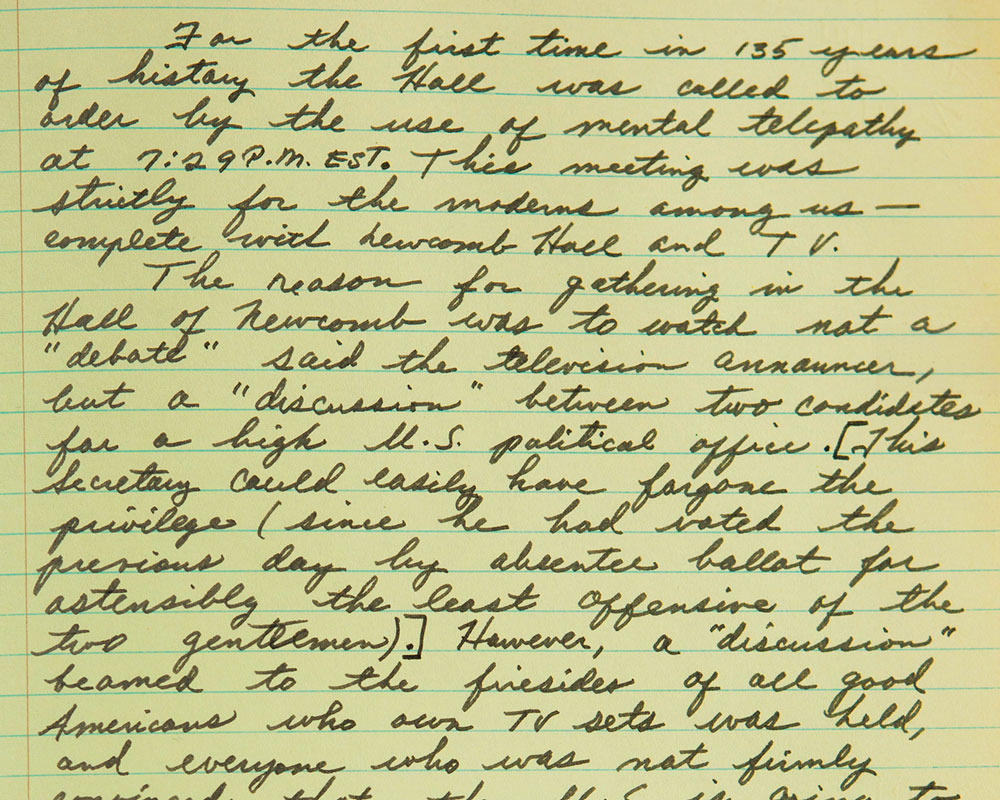 For the first time in 135 years
of history the Hall was called to
order by the use of mental telepathy
at 7:29 P.M. EST. This meeting was
strictly for the moderns among us —
complete with Newcomb Hall and TV.
The reason for gathering in the
Hall of Newcomb was to watch not a
"debate" said the television announcer,
but a "discussion" between two candidates
for a high U.S. political office. [This
Secretary could easily have forgone the
privilege (since he had voted the
previous day by absentee ballot for
ostensibly the least offensive of the
two gentlemen).] However, a "discussion"
beamed to the firesides of all good
Americans who own TV sets was held,
and everyone who was not firmly
convinced that the U.S. is going to